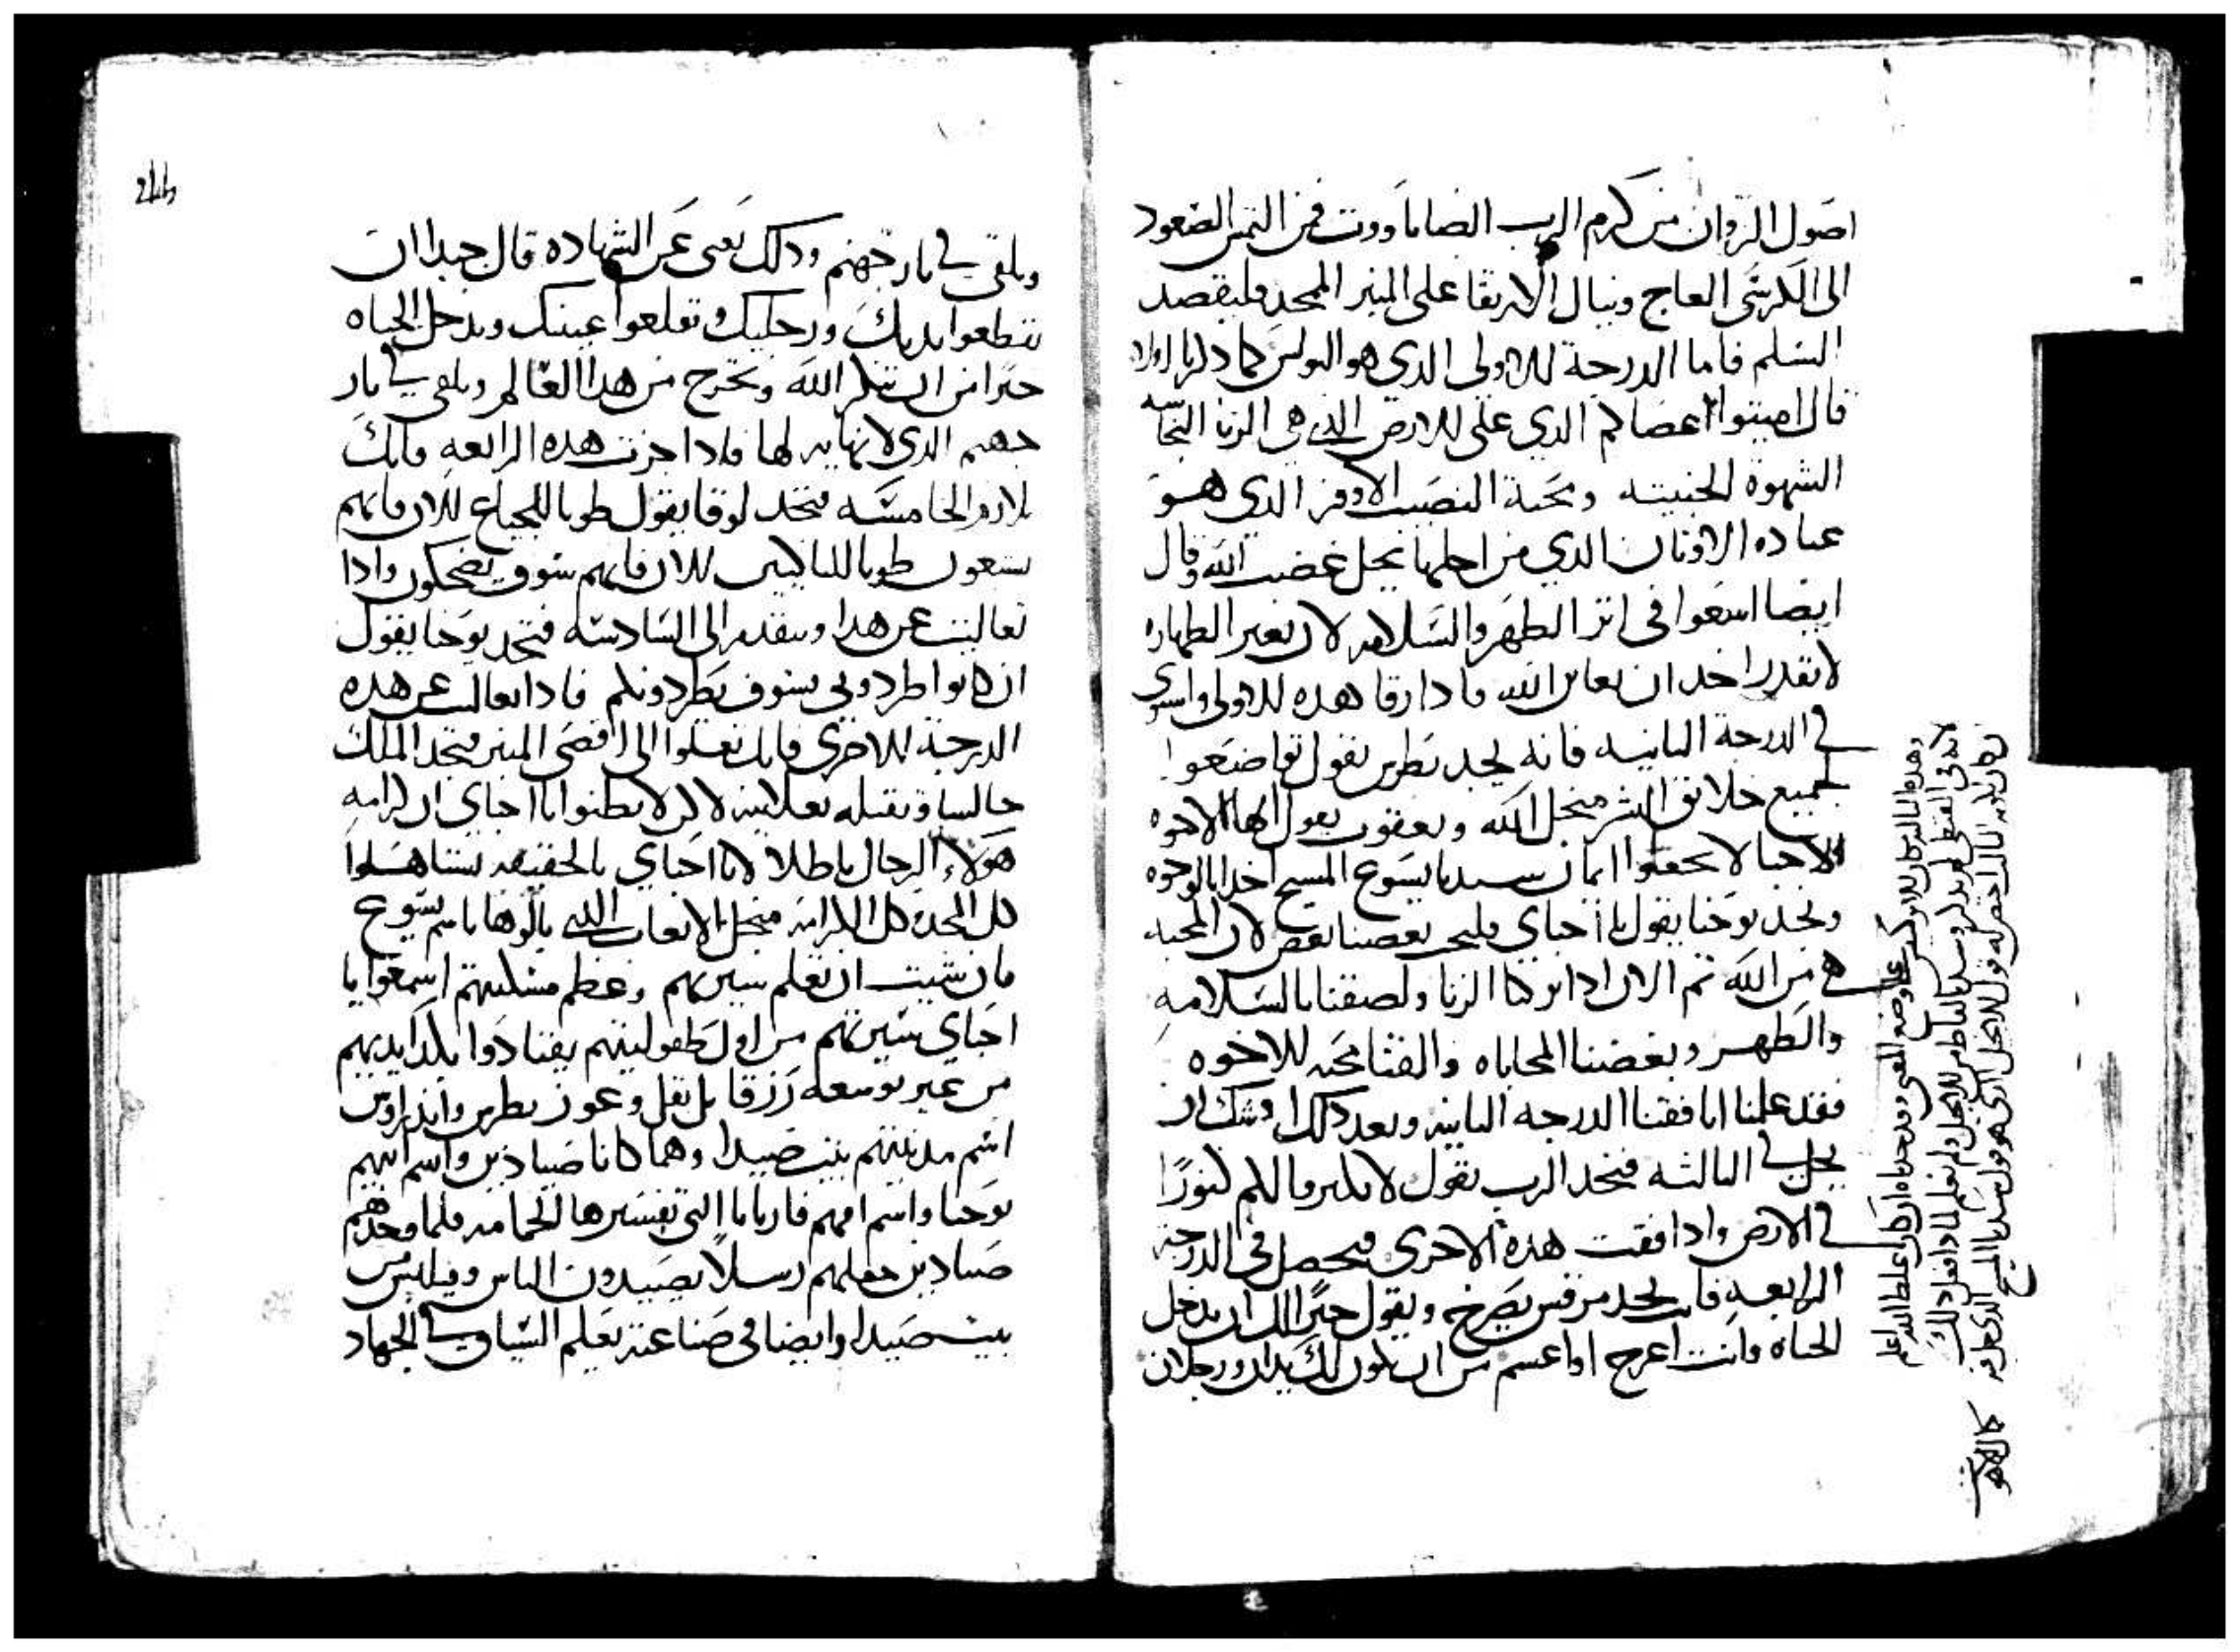 اصول الزوان من كرم الرب الضاماووت فمن التمس الصعود
الى الكرسي العاج ونيال الارتقا على المنبر الممجد فليقصد
السلم فاما الدرجة للاولى الدي هو البولس كما دكرنا اولا
قال اميتوا اعضاكم الدي على للارض الدي هي الزنا النجاسه
الشهوة الخبيثه ومحبة النصيب الاوفر الدي هو
عباده الاوتان الدي من اجلها يحل غضب الله وقال
ايضا اسعوا في اتر الطهر والسلامه لان بغير الطهاره
لا يقدر احد ان يعاين الله فادا رقا هده للاولى واستوى
في الدرجة التانيه فانه يجد بطرس يقول تواضعوا
لجميع خلايق البشر من اجل الله ويعقوب يقول ايها الاخوه
الاحبا لا تحققوا ايمان سيدنا يسوع المسيح اخدا بالوجوه
وتجد يوحنا يقول يا احباي فليحب بعضنا بعض لان المحبه
هي من الله تم الان ادا تركنا الزنا ولصقنا بالسلامه
والطهر وبغضنا المحاباه والفتنا محبه للاخوه
فقد علمنا انا فقنا الدرجه التانيه وبعد دلك اوشك ان
يحل في التالته فتجد الرب يقول لا تكنزوا لكم كنوزا
في الارض وادا فقت هده الاخرى فتحصل في الدرجه
الرابعه فانت تجد مرقس يصرخ ويقول خير لك ان تدخل
الحياه وانت اعرج او اعسم من ان يكون لك يدان ورجلان
وهده التالته كان للاوكد على وضع المعنى وقد وجدناه اركان غلط الله اعلم
لانه في القبطي لم يدكر سيدنا الناطق للانجيل ولم نعلم لمادا فعل دلك
كالاهوت
244
وتلقى في نار جهنم ودلك يعني عن الشهاده قال جيدا ان
تقطعوا يديك ورجليك وتقلعوا عينيك وتدخل الحياه
خير من ان تنكر الله وتخرج من هدا العالم وتلقى في نار
جهنم الدي لا نهايه لها فادا جزت هده الرابعه فانك
تلازم الخامسه فتجد لوقا يقول طوبا للجياع للان فانهم
يشبعون طوبا للباكيين للان فانهم سوف يضحكون وادا
تعاليت عن هدا وتتقدم الى السادسه فتجد يوحنا يقول
ان كانوا طردوني سوف يطردونكم فادا تعاليت عن هده
الدرجة للاخرى فانك تعلوا الى اقصى المنبر فتجد الملك
جالسا وتقبله تعلابيه لاكن لا تظنوا يا احباي ان كرامه
هولاء الرجال باطلا لانا احباي بالحقيقه يستاهلوا
كل المجد وكل الكرامه من اجل الاتعاب الدي نالوها باسم يسوع
فان شيت ان تعلم سيرتهم وعظم مسكنتهم اسمعوا يا
احباي سيرتهم من اول طفوليتهم يقتادوا بكد ايديهم
من غير توسعه رزقا بل بقل وعوز بطرس واندراوس
اسم مدينتهم بيت صيدا وهما كانا صيادين واسم ابيهم
يوحنا واسم امهم فاربابا التي تفسيرها الحمامه فلما وجدهم
صيادين جعلهم رسلا يصيدون الناس وفيلبس
بيت صيدا وايضا في صناعته يعلم السياق في الجهاد